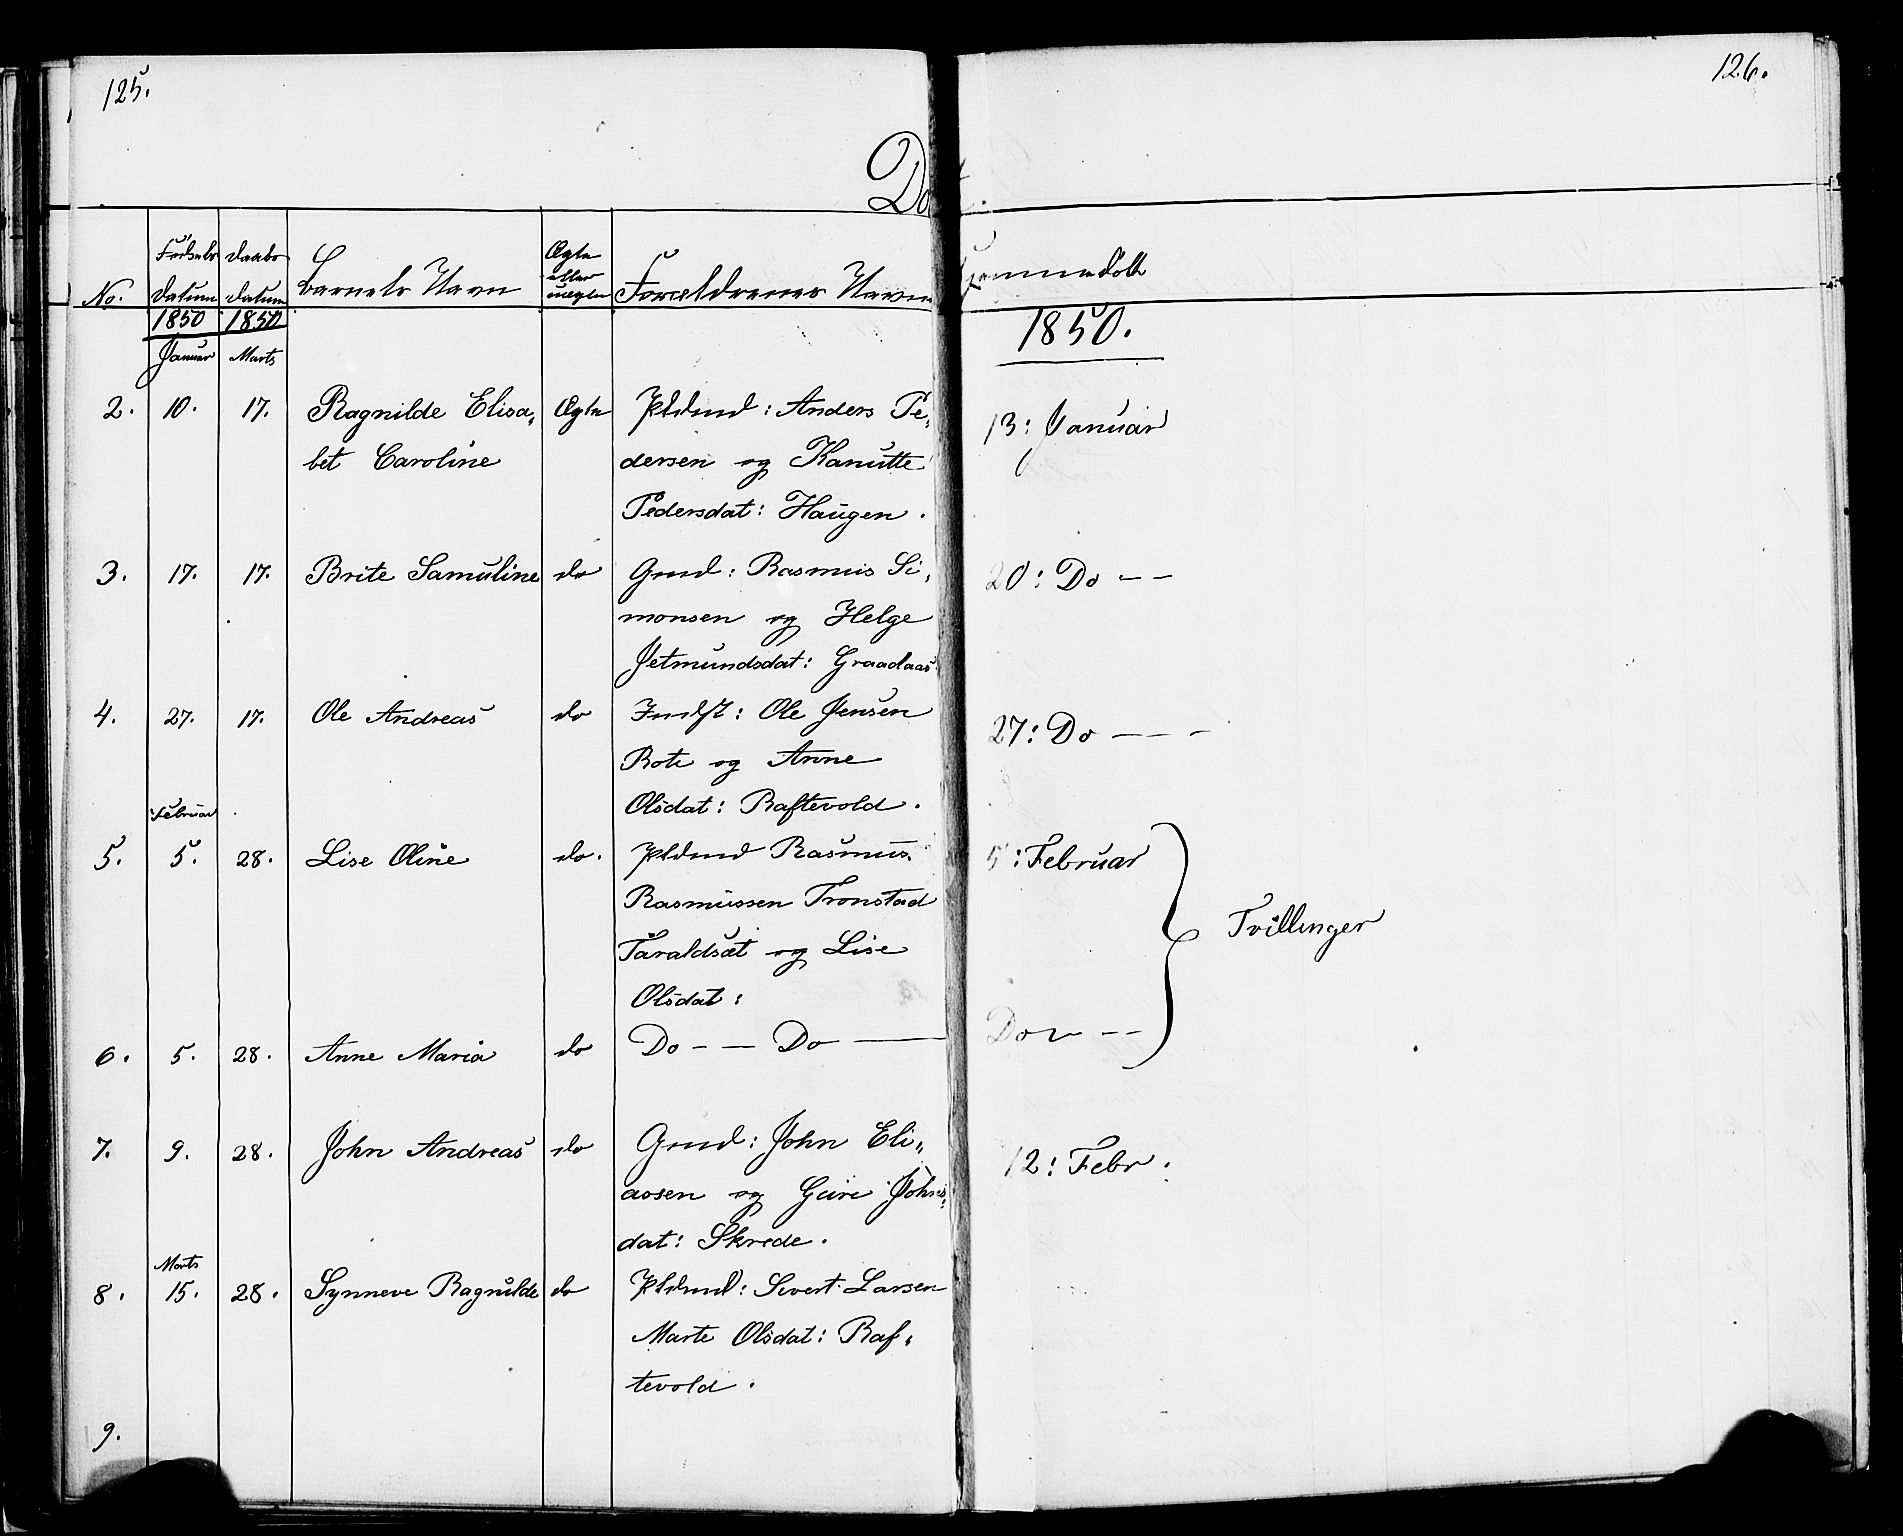 125.
126.
Dø
No.
Fødsels Datum
Daabs Datum
Barnets Navn
Ægte eller uægte
Forældrenes Navne
Hjemmedøbt
1850
1850
1850.
Januar
Marts
2. 10. 17. Ragnilde Elisa„ Ægte Pldmd: Anders Pe„ 13: Januar
bet Caroline dersen og Kanutte
Pedersdat: Haugen.
3. 17. 17. Brite Samuline do Gmd: Rasmus Si„ 20: Do — —
monsen og Helge
Jetmundsdat: Graadaas
4. 27. 17. Ole Andreas do Indst: Ole Jensen 27: Do — — —
Rote og Anne
Olsdat: Raftevold.
Februar
5. 5. 28. Lise Oline do. Pldmd Rasmus 5: Februar
Rasmussen Tronstad Tvillinger
Taraldsæt og Lise
Olsdat:
6. 5. 28. Anne Maria do Do — — Do — Do — —
7. 9. 28. John Andreas do Gmd: John Eli„ 12: Febr.
assen og Guri Johns„
dat: Skrede.
Marts
8. 15. 28. Synneve Ragnilde do Pldmd: Sivert Larsen
Marte Olsdat: Raf„
tevold.
9.